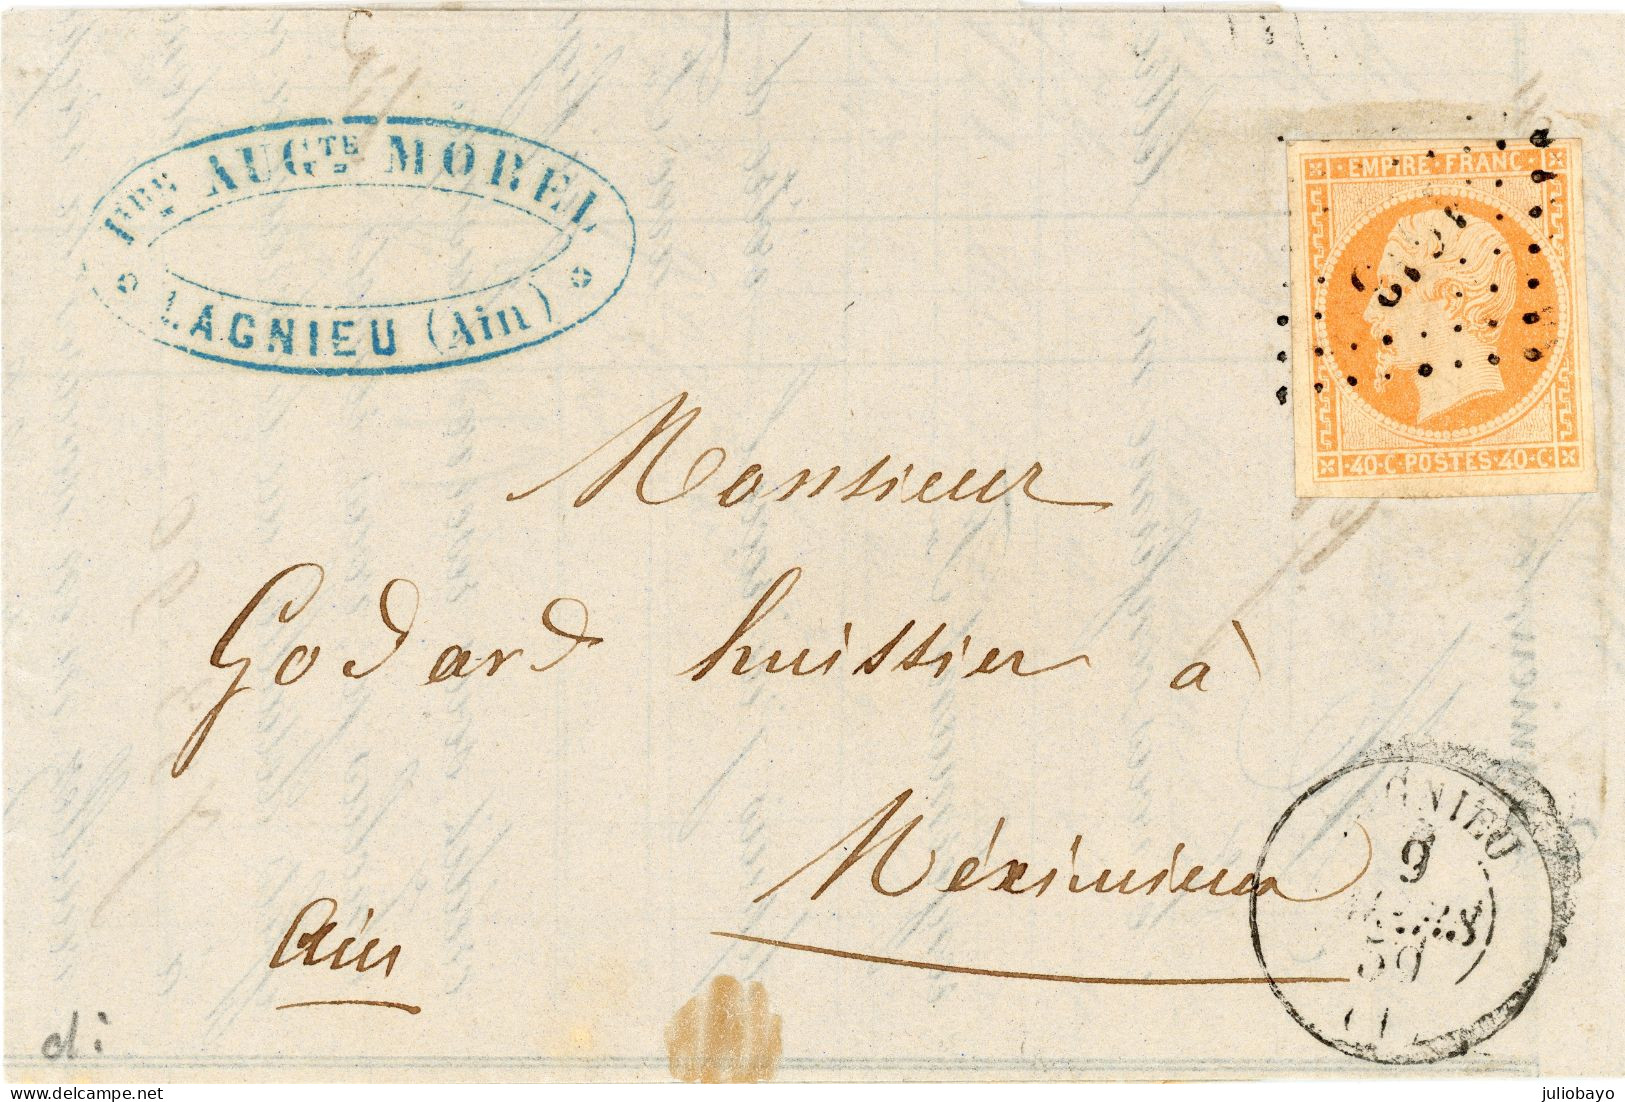 AUG.TE MOREL
LAGNIEU (Ain)
EMPIRE · FRANC ·
· 40 · C · POSTES · 40 · C ·
Monsieur
Godard huissier à
Méximieux
Ain
GNIEU
9
MARS
59
di
delcampe.net
juliobayo